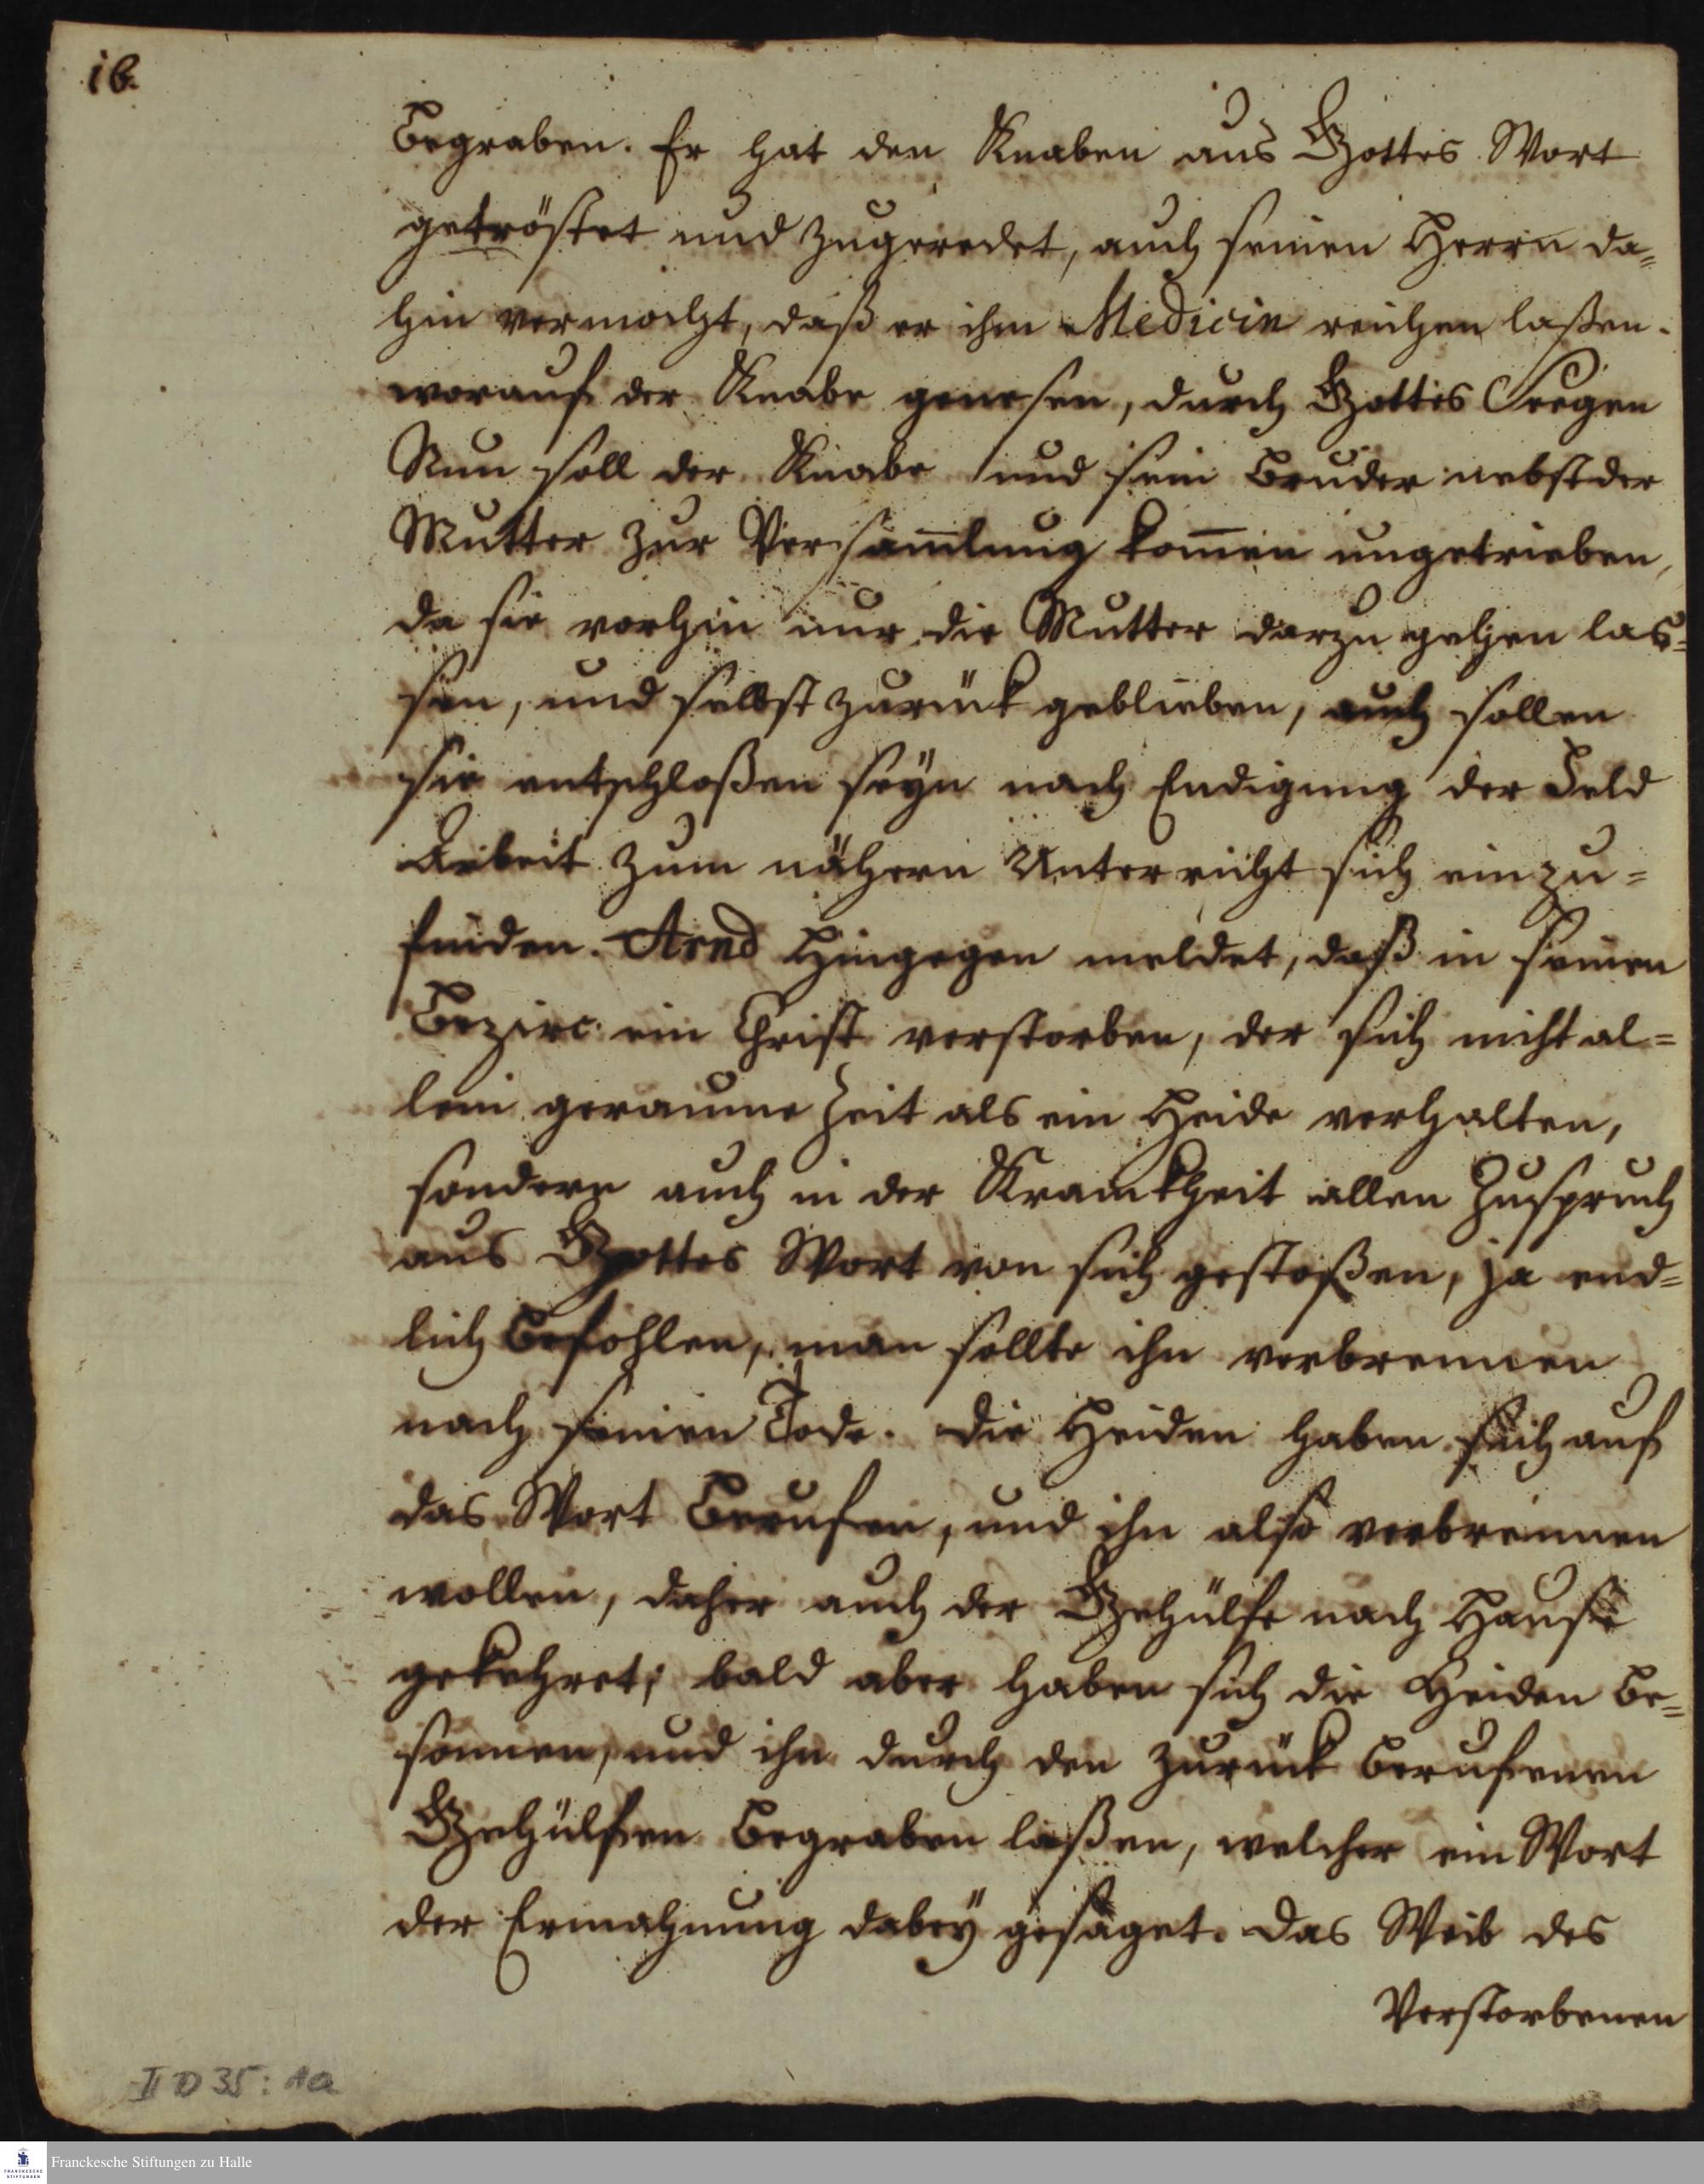 16.
Begraben. Er hat den Knaben aus Gottes Wort
getröstet und zugeredet, auch seinen Herrn da=
hin vermocht, daß er ihm Medicin reichen laßen.
worauf der Knabe genesen, durch Gottes Seegen
Nun soll der Knabe und sein Bruder nebst der
Mutter zur Versam̄lung kom̄en ungetrieben,
da sie vorhin nur die Mutter darzu gehen las=
sen, und selbst zurück geblieben, auch sollen
sie entschloßen seyn nach Endigung der Feld
Arbeit zum nähern Unterricht sich einzu=
finden. Arnd Hingegen meldet, daß in seinen
Bezirc ein Christ verstorben, der sich nicht al=
lein geraume Zeit als ein Heide verhalten,
sondern auch in der Kranckheit allen Zuspruch
aus Gottes Wort von sich gestoßen, ja end=
lich Befohlen, man sollte ihn verbrennen
nach seinen Tode. Die Heiden haben sich auf
das Wort Beruffen, und ihn also verbrennen
wollen, daher auch der Gehülfe nach Hause
gekehret; bald aber haben sich die Heiden Be=
sonnen, und ihn durch den zurück Beruffenen
Gehülfen Begraben laßen, welcher ein Wort
der Ermahnung dabey gesaget. Das Weib des
Verstorbenen
II D 35: 1a
Franckesche Stiftungen zu Halle
FRANCKESCHE
STIFTUNGEN